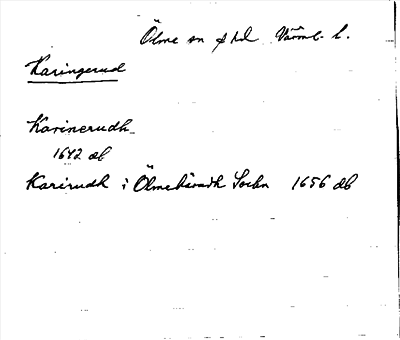 Ölme sn Värml. l.
Karingerud
Karinerudh
1642 db
Karirudh i Ölmehäradh Sochn 1656 db